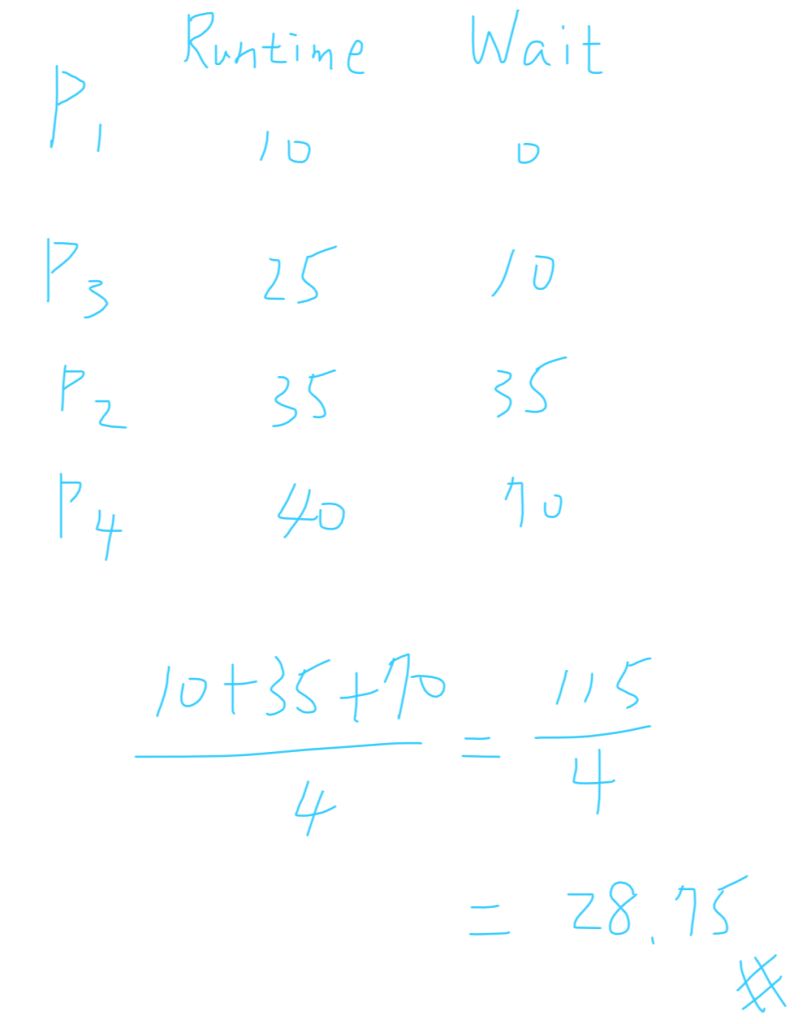 Runtime Wait
P1 10 0
P3 25 10
P2 35 35
P4 40 70
10+35+70 / 4 = 115 / 4
= 28.75 #